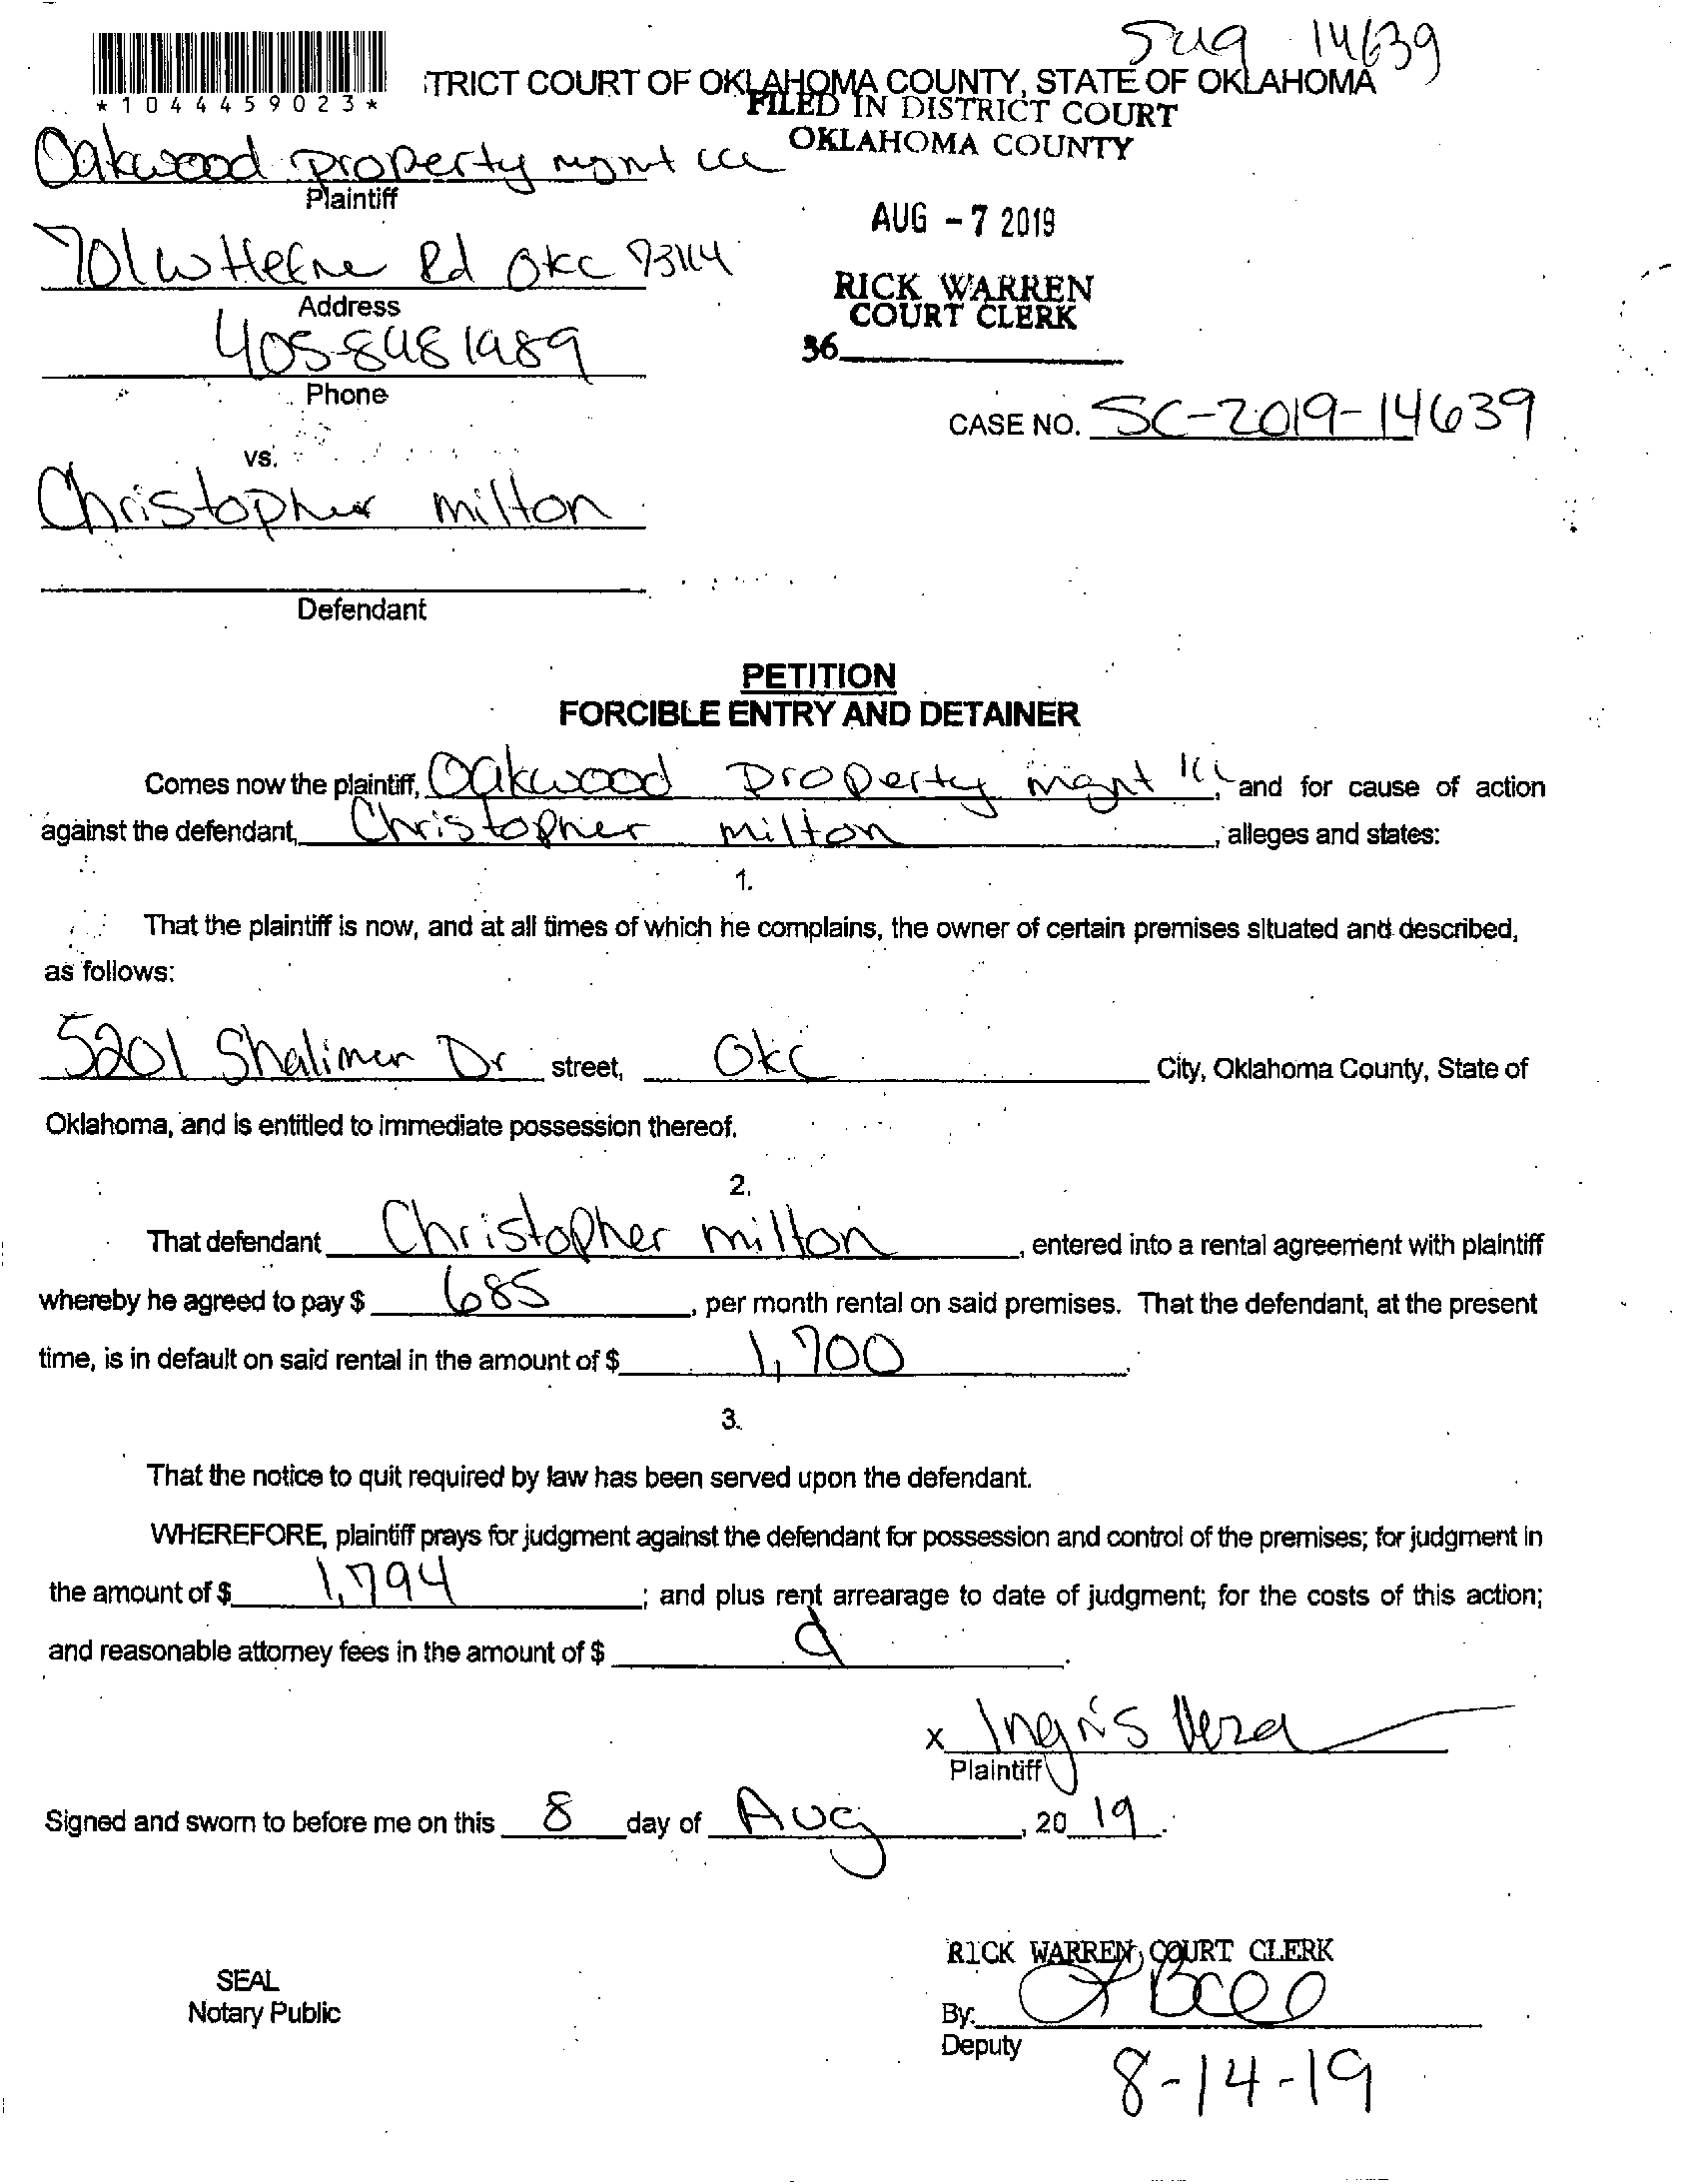 14639
*1044459023*
TRICT COURT OF OKLAHOMA COUNTY, STATE OF OKLAHOMA
FILED IN DISTRICT COURT
OKLAHOMA COUNTY
Oakwood property mgmt llc
Plaintiff
AUG -7 2019
701 W Hefner Rd OKC 73114
Address
RICK WARREN
COURT CLERK
405-848 1989
36
Phone
CASE NO. SC-2019-14639
vs.
Christopher milton
Defendant
PETITION
FORCIBLE ENTRY AND DETAINER
Comes now the plaintiff, Oakwood Property mgnt llc, and for cause of action
against the defendant, Christopher milton, alleges and states:
1.
That the plaintiff is now, and at all times of which he complains, the owner of certain premises situated and described,
as follows:
5201 Shalimar Dr street, OKC City, Oklahoma County, State of
Oklahoma, and is entitled to immediate possession thereof.
2.
That defendant Christopher milton, entered into a rental agreement with plaintiff
whereby he agreed to pay $ 685, per month rental on said premises. That the defendant, at the present
time, is in default on said rental in the amount of $ 1,700.
3.
That the notice to quit required by law has been served upon the defendant.
WHEREFORE, plaintiff prays for judgment against the defendant for possession and control of the premises; for judgment in
the amount of $ 1,794; and plus rent arrearage to date of judgment; for the costs of this action;
and reasonable attorney fees in the amount of $
x Ingris Vera
Plaintiff
Signed and sworn to before me on this 8 day of Aug, 2019.
RICK WARREN, COURT CLERK
SEAL
Notary Public
By:
Deputy
8-14-19